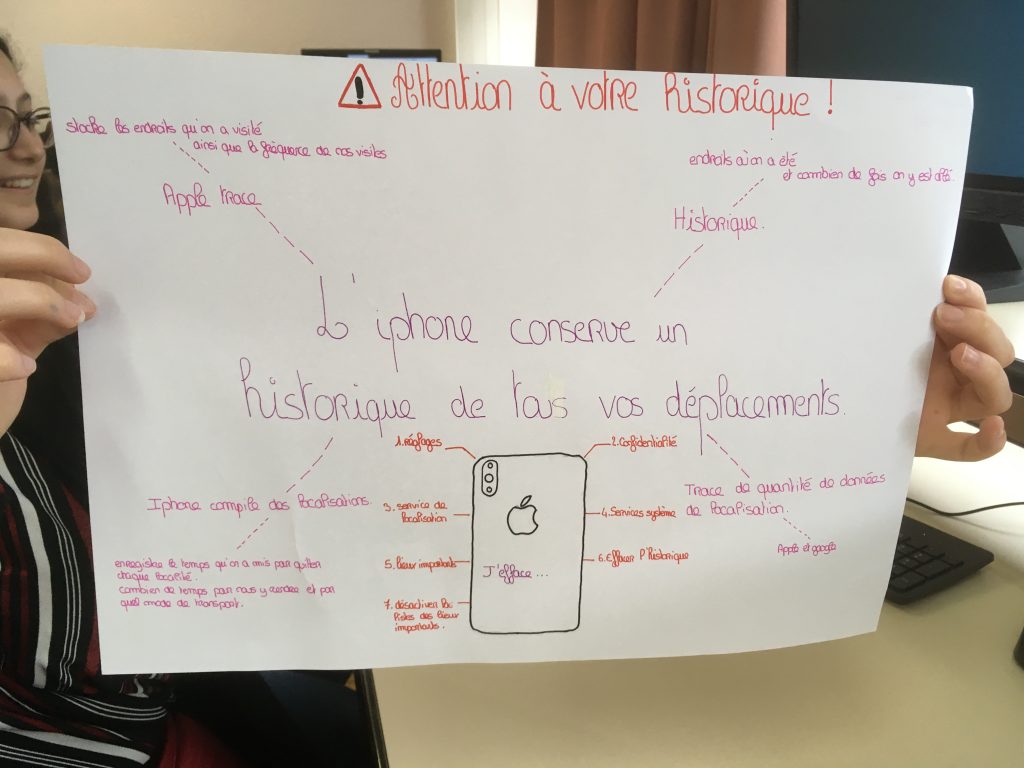 Attention à votre historique !
stocke les endroits qu'on a visité
ainsi que la fréquence de nos visites
Apple trace
endroits où on a été
et combien de fois on y est allé.
Historique.
L'iphone conserve un
historique de tous vos déplacements.
1. réglages
2. Confidentialité
3. service de
localisation
4. Services système
5. lieux importants
6. Effacer l'historique
7. désactiver la
listes des lieux
importants.
J'efface...
Iphone compile des localisations.
enregistre le temps qu'on a mis par quitter
chaque localité.
combien de temps pour nous y rendre et par
quel mode de transport.
Trace de quantité de données
de localisation.
Apple et google